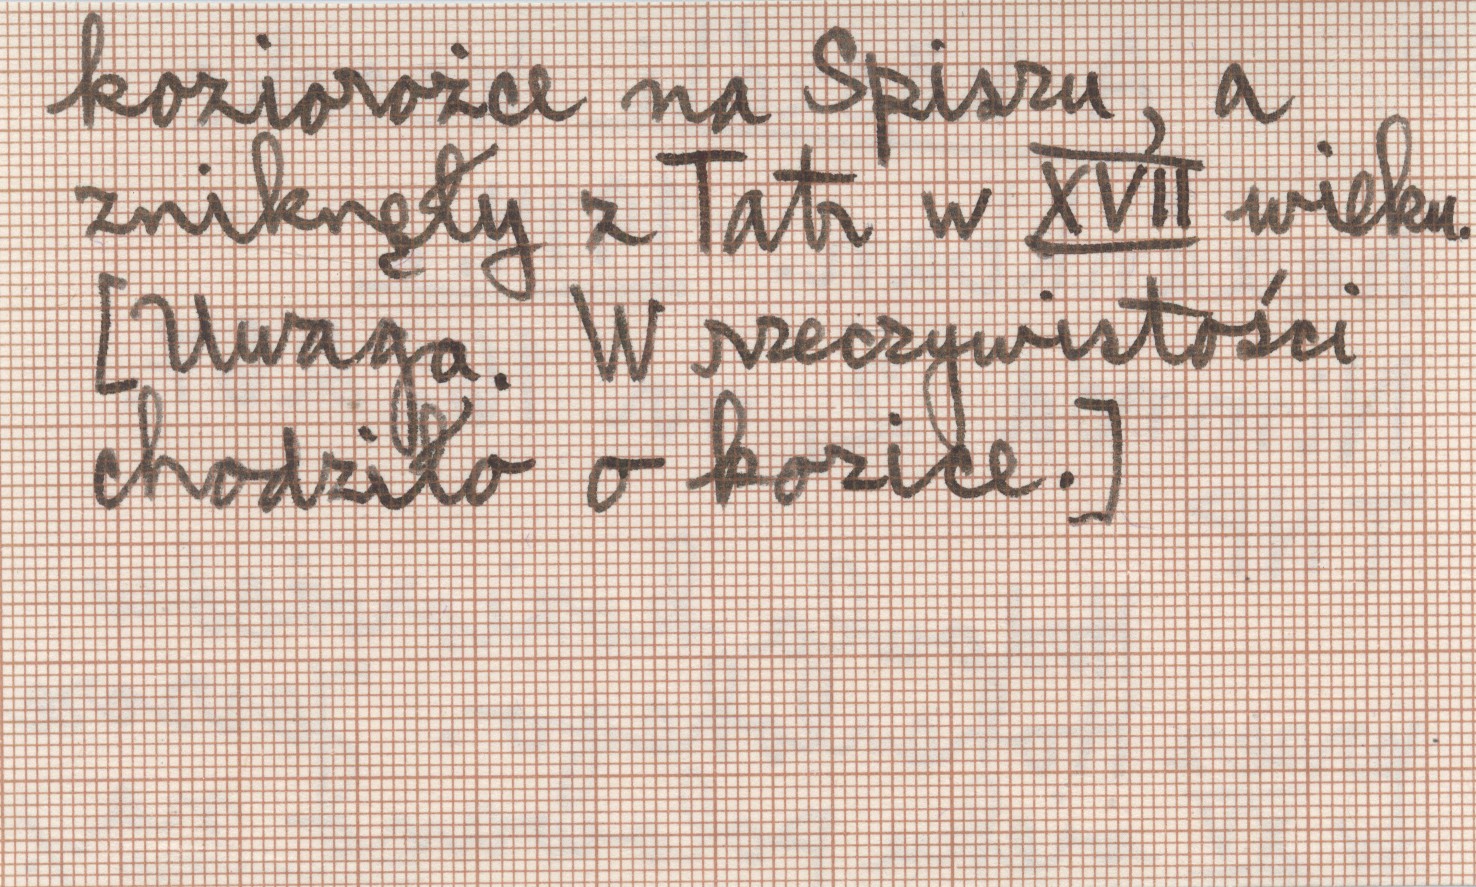 koziorożce na Spiszu, a
zniknęły z Tatr w XVII wieku.
[Uwaga. W rzeczywistości
chodziło o kozice.]